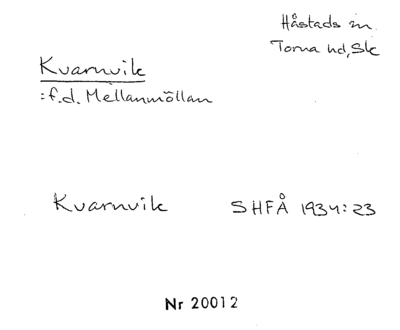 Håstads sn.
Torna hd, Sk
Kvarnvik
: f.d. Mellanmöllan
Kvarnvik SHFÅ 1934:23
Nr 20012